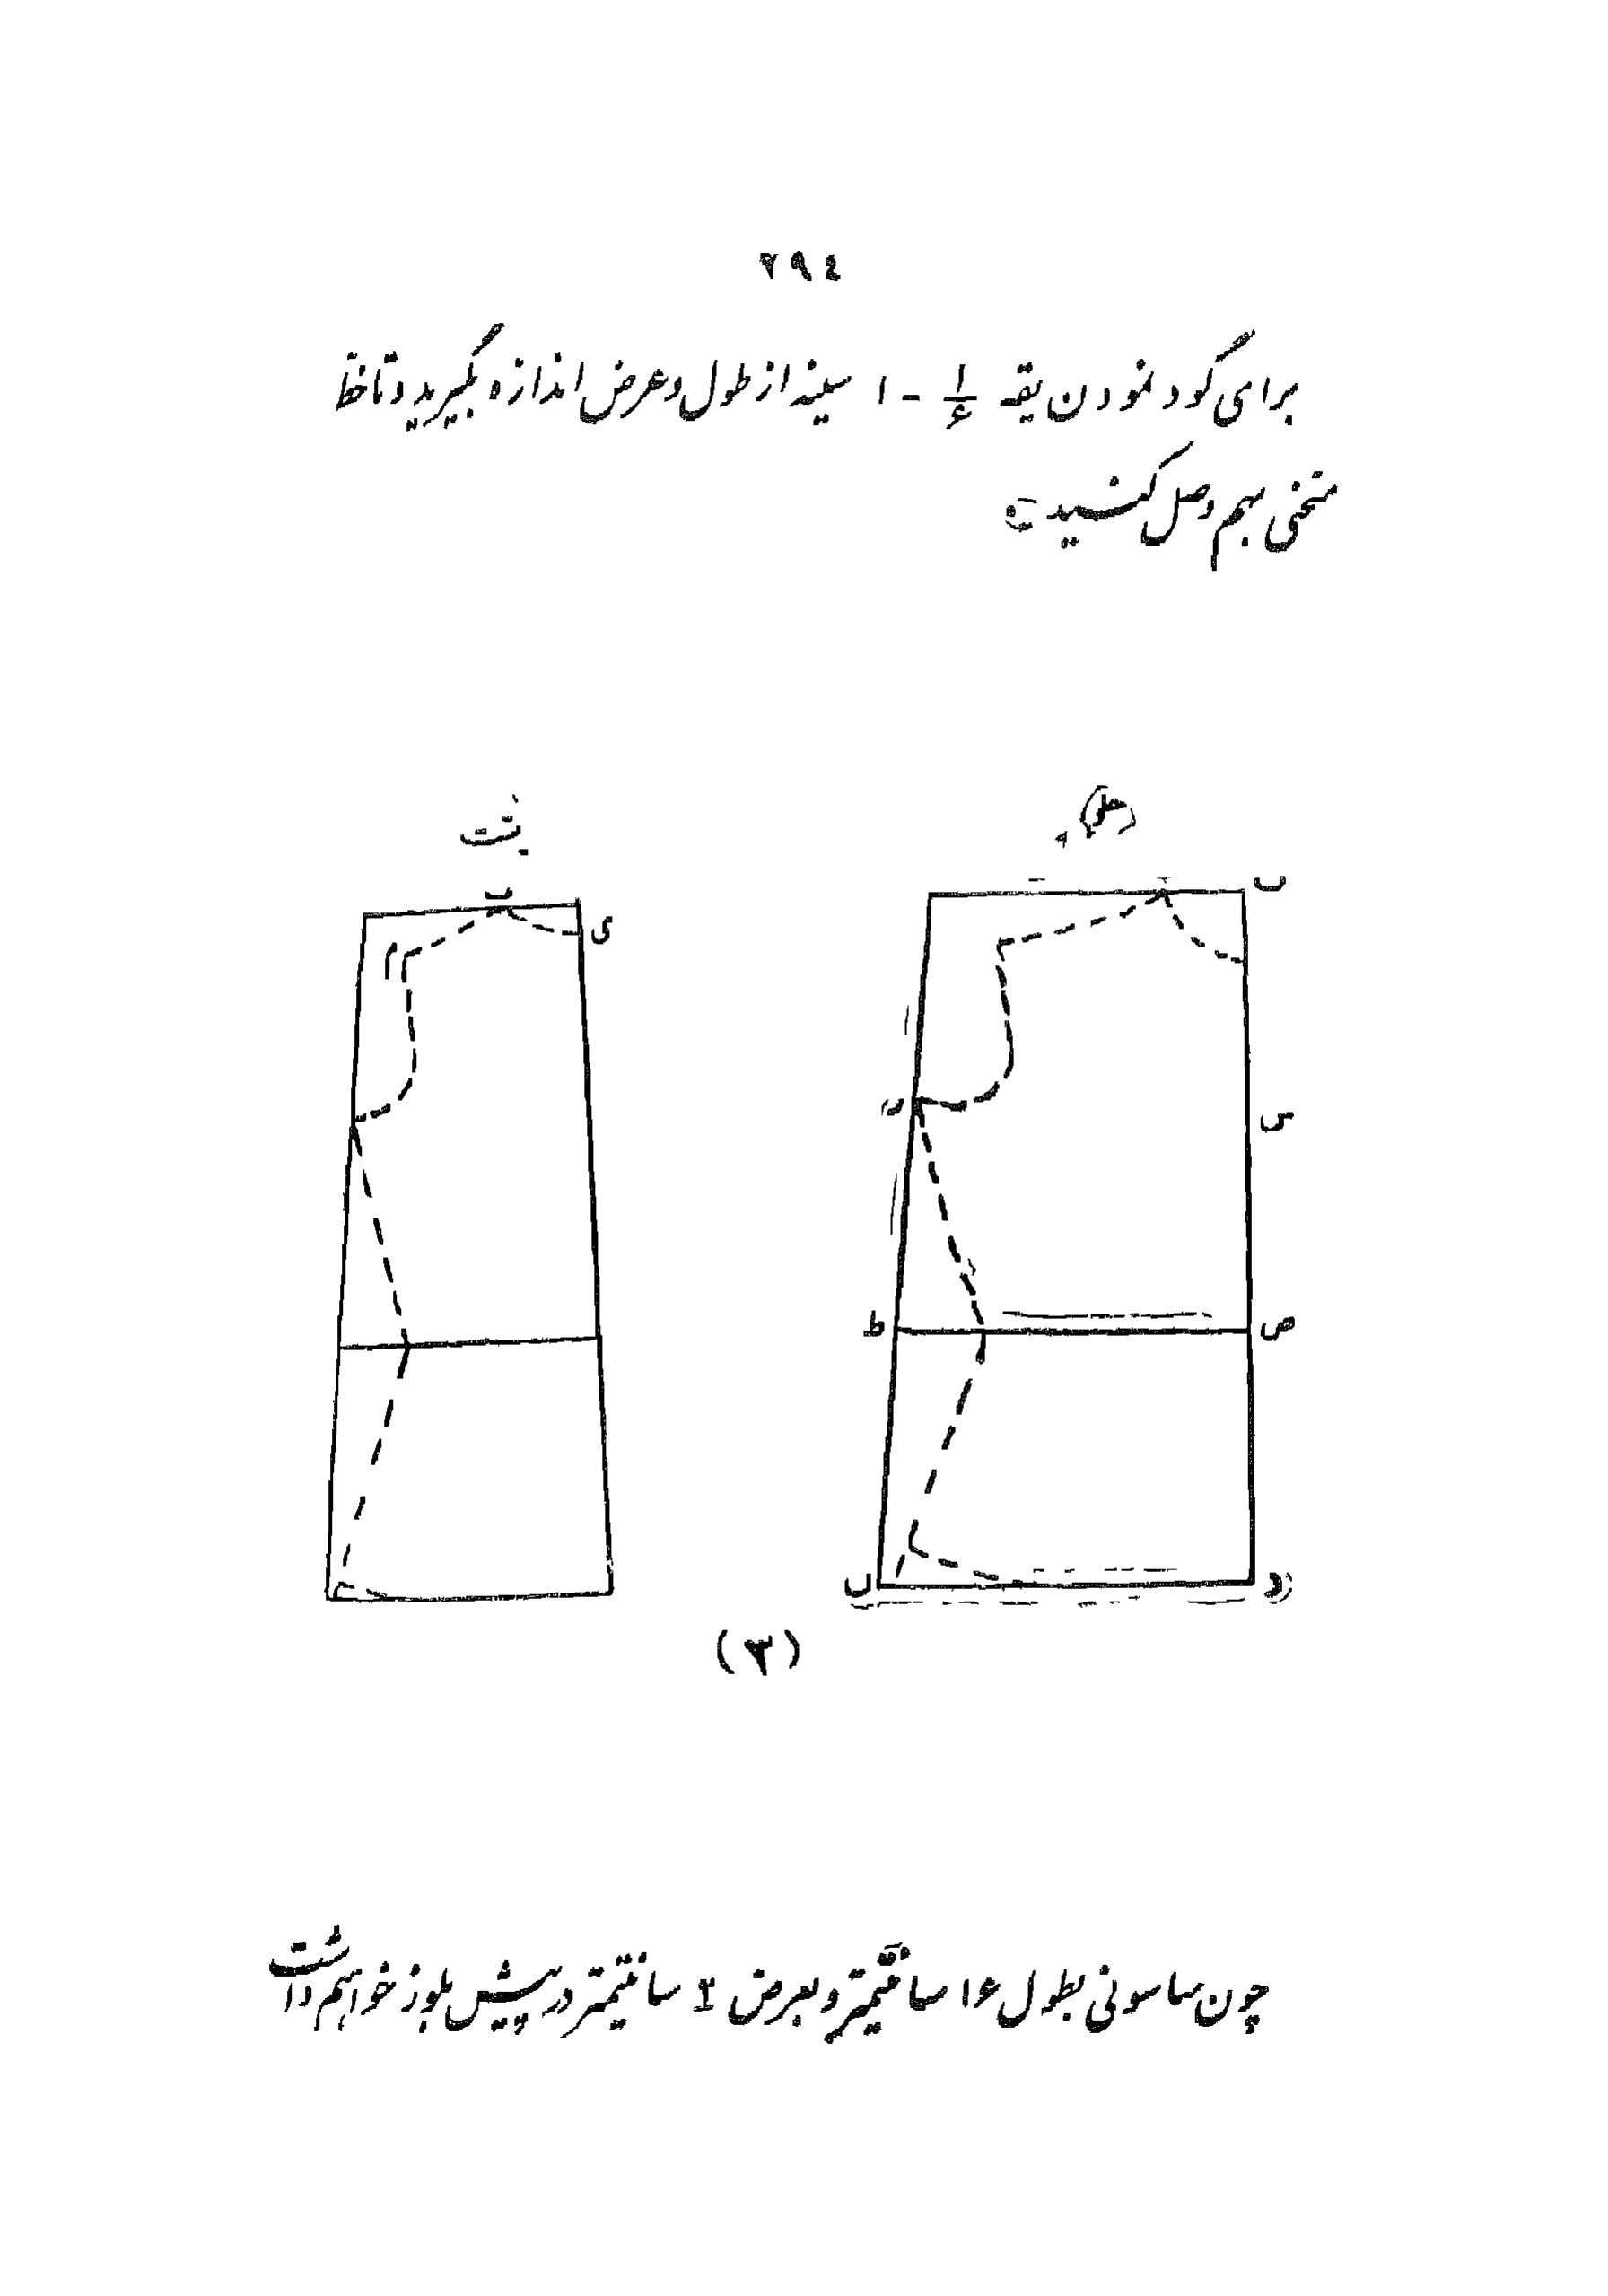 ٢٩٤
برای گود نمودن یقه ۱/۶ - ۱ سینه از طول و عرض اندازه بگیرید و تا خط
منحنی بهم وصل کنید
پشت
ب
ب
ی
س
ط
ص
ل
د
(٣)
چون ساسونی بطول ۱۶ سانتیمتر و بعرض ۳ سانتیمتر در پیش بلوز خواهیم داشت